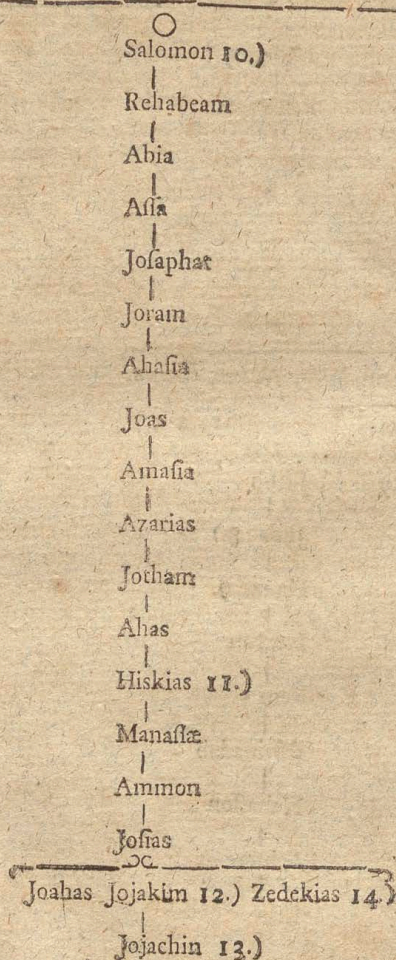 Salomon 10.)
Rehabeam
Abia
Aſſa
Joſaphat
Joram
Ahaſia
Joas
Amaſia
Azarias
Jotham
Ahas
Hiskias 11.)
Manaſſæ
Ammon
Joſias
Joahas Jojakim 12.) Zedekias 14.)
Jojachin 13.)